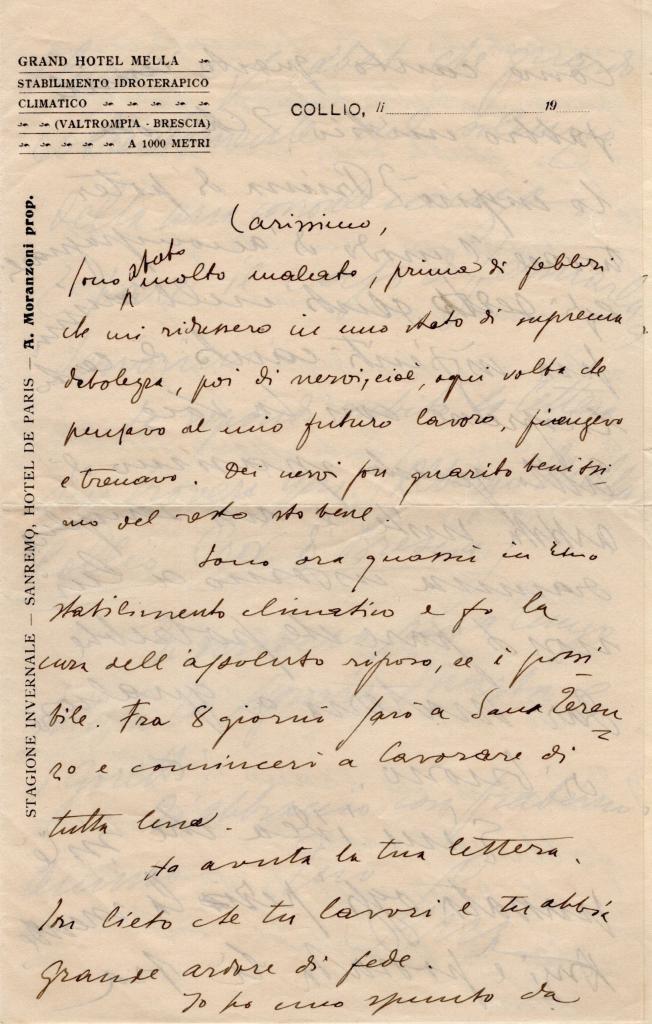 GRAND HOTEL MELLA
STABILIMENTO IDROTERAPICO
CLIMATICO
(VALTROMPIA - BRESCIA)
A 1000 METRI
COLLIO, li 19
STAGIONE INVERNALE — SANREMO, HOTEL DE PARIS — A. Moranzoni prop.
Carissimo,
Sono stato molto malato, prima di febbri
che mi ridussero in uno stato di suprema
debolezza, poi di nervi, cioè, ogni volta che
pensavo al mio futuro lavoro, piangevo
e tremavo. Dei nervi son guarito benissi-
mo del resto sto bene.
Sono ora quassù in uno
stabilimento climatico e fo la
cura dell'assoluto riposo, se è possi
bile. Fra 8 giorni sarò a San Teren
zo e comincerò a lavorare di
tutta lena.
Ho avuta la tua lettera.
Son lieto che tu lavori e tu abbia
grande ardore di fede.
Io ho uno spunto da